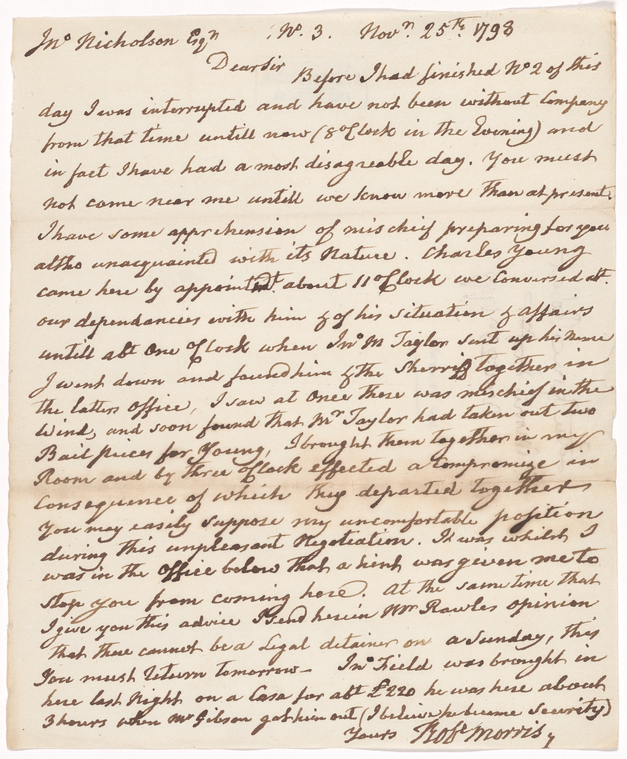 Jnº Nicholson Esqr Nº. 3. Novr. 25th. 1798
Dear Sir
Before I had finished Nº 2 of this
day I was interrupted and have not been without Company
from that time untill now (8 oClock in the Evening) and
in fact I have had a most disagreable day. You must
not come near me untill we know more than at present.
I have some apprehension of mischief preparing for you
altho unacquainted with its Nature. Charles Young
came here by appointmt. about 11 oClock we Conversed abt.
our dependancies with him & of his situation & affairs
untill abt One oClock when Jnº M Taylor sent up his Name
I went down and found him & the Sherriff together in
the latters office, I saw at Once there was mischief in the
Wind, and soon found that Mr Taylor had taken out two
Bail pieces for Young, I brought them together in my
Room and by three oClock effected a compromize in
Consequence of which they departed together
You may easily suppose my uncomfortable position
during this unpleasant Negotiation. It was whilst I
was in the Office below that a hint was given me to
stop you from coming here. At the same time that
I give you this advice I send herein Mr Rawles opinion
that there cannot be a Legal detainer on a Sunday, this
You must return tomorrow - Jnº Field was brought in
here last Night on a Casa for abt £220 he was here about
3 hours when Mr Gibson got him out (I believe he became security)
Yours Robt Morris